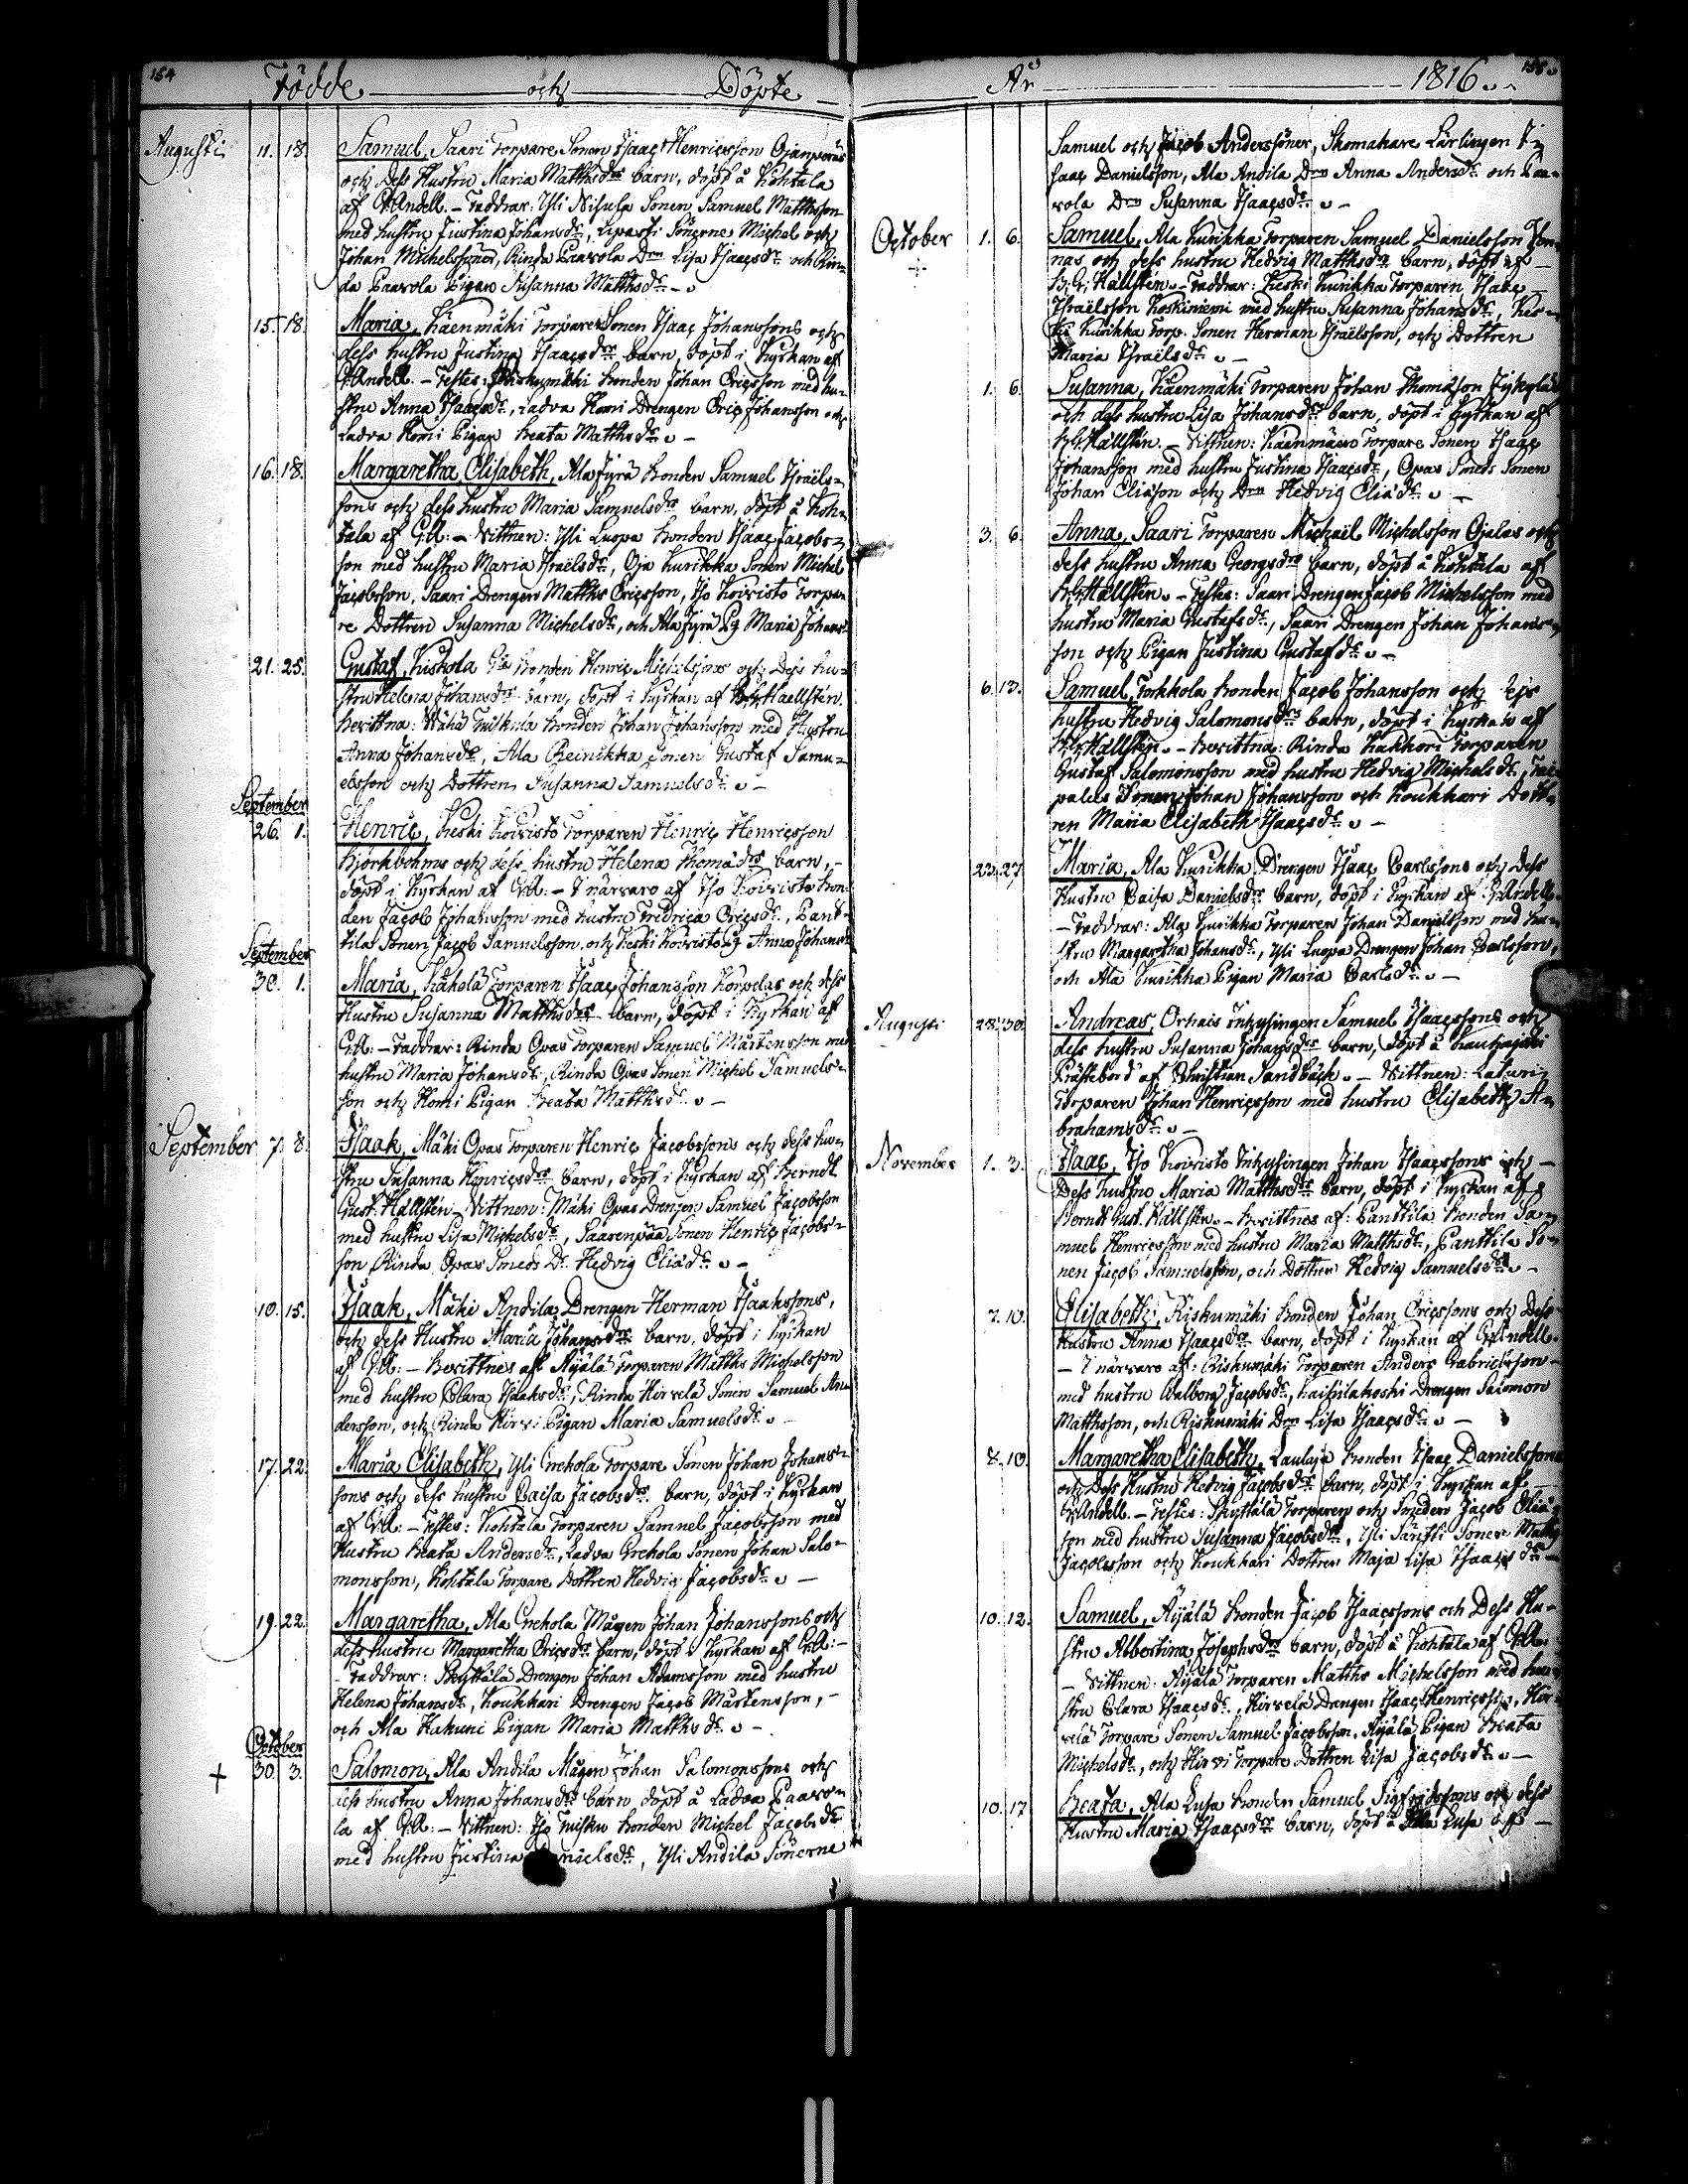 154
Födde och Döpte
Augusti 11. 18. Samuel, Saari Torpare Sonen Isaac Henricsson Ojanperäs
och dess Hustru Maria Matthsdrs barn, döpt å Kohtala
af G:Andell. – Faddrar: Yli Nisula Sonen Samuel Matthsson
med hustru Justina Johansdr, Liparti Sönerne Michel och
Johan Michelssöner, Rinda Paavola Drn Lisa Isaacsdr och Rin-
da Paavola Pigan Susanna Matthsdr –
15. 18. Maria, Käenmäki Torpare Sonen Isaac Johanssons och
dess hustru Justina Isaacsdrs barn, döpt i Kyrkan af
G:Andell. – Testes: Riskumäki bonden Johan Ericsson med hu-
stru Anna Isaacsdr, Ladva Komi Drengen Eric Johansson och
Ladva Komi Pigan Beata Matthsdr –
16. 18. Margaretha Elisabeth, Ala Jyrä bonden Samuel Israels-
sons och dess hustru Maria Samuelsdrs barn, döpt å Koh-
tala af G:A: – Vittnen: Yli Luopa bonden Isaac Jacobs-
son med hustru Maria Israelsdr, Oja Kurikka Sonen Michel
Jacobsson, Saari Drengen Matths Ericsson, Iso Koivisto Torpa-
re Dottren Susanna Michelsdr, och Ala Jyrä Pig Maria Johansdr
21. 25. Gustaf, Kiskola bonden Henric Michelssons och Dess hu-
stru Helena Johansdrs barn, döpt i Kyrkan af B:G:Haellstén.
Bevittna: Vähä Tuiskula bonden Johan Johansson med Hustru
Anna Johansdr, Ala Reinikka Sonen Gustaf Samu-
elsson och Dottren Susanna Samuelsdr –
September
26. 1. Henric, Keski Koivisto Torparen Henric Henricsson
Björkbohms och dess hustru Helena Thomædrs barn, –
döpt i Kyrkan af G:A: – I närvaro af Iso Koivisto bon-
den Jacob Johansson med hustru Fredrica Ericsdr, Pant-
tila Sonen Jacob Samuelsson, och Keski Koivisto Pig Anna Johansdr
September
30. 1. Maria, Kähelä Torparen Isaac Johansson Korpelas och dess
Hustru Susanna Matthsdrs barn, döpt i Kyrkan af
G:A: – Faddrar: Rinda Opas Torparen Samuel Mårtensson med
hustru Maria Johansdr, Rinda Opas Sonen Michel Samuels-
son och Komi Pigan Beata Matthsdr –
September 7. 8. Isaak, Mäki Opas Torparen Henric Jacobssons och dess hu-
stru Susanna Henricsdrs barn, döpt i Kyrkan af Berndt
Gust. Hällstén. Vittnen: Mäki Opas Drengen Samuel Jacobsson
med hustru Lisa Michelsdr, Saarenpää Sonen Henric Jacobs-
son Rinda Opas Smeds Dr Hedvig Eliædr –
10. 15. Isaak, Mäki Andila Drengen Herman Isaakssons,
och dess Hustru Maria Johansdrs barn, döpt i Kyrkan
af G:A: – Bevittnes af Äijälä Torparen Matths Michelsson
med hustru Clara Isaaksdr, Rinda Hirvelä Sonen Samuel An-
dersson, och Rinda Hirvi Pigan Maria Samuelsdr –
17. 22. Maria Elisabeth, Yli Grekola Torpare Sonen Johan Johans-
sons och dess hustru Caisa Jacobsdrs barn, döpt i Kyrkan
af G:A: – Testes: Kohtala Torparen Samuel Jacobsson med
Hustru Beata Andersdr, Ladva Grekola Sonen Johan Salo-
monsson, Kohtala Torpare Dottren Hedvig Jacobsdr –
19. 22. Margaretha, Ala Grekola Mågen Johan Johanssons och
dess hustru Margaretha Ericsdrs barn, döpt i Kyrkan af G:A: –
– Faddrar: Skyttälä Drengen Johan Adamsson med hustru
Helena Johansdr, Koukkari Drengen Jacob Mårtensson, –
och Ala Hakuni Pigan Maria Matthsdr –
October
+ 30. 3. Salomon, Ala Andila Mågen Johan Salomonssons och
dess hustru Anna Johansdrs barn döpt å Ladva Paavo-
la af G:A: – Vittnen: Iso Tuisku bonden Michel Jacobsdr
med hustru Justina Danielsdr, Yli Andila Sönerne
År 1816
155
Samuel och Jacob Anderssöner, Skomakare Lärlingen I-
saac Danielsson, Ala Andila Drn Anna Andersdr och Paa-
vola Drn Susanna Isaacsdr –
October 1. 6. Samuel, Ala Kurikka Torparen Samuel Danielsson
nas och dess hustru Hedvig Matthsdrs barn, döpt af –
B:G: Hällstén. – Faddrar: Keski Kurikka Torparen Isaac –
Israëlsson Koskiniemi med hustru Susanna Johansdr, Kes-
ki Kurikka Torp. Sonen Herman Israëlsson, och Dottren
Maria Israëlsdr –
1. 6. Susanna, Käenmäki Torparen Johan Thomasson Jyskylä
och dess hustru Lisa Johansdrs barn, döpt i Kyrkan af
B:G:Hällstén. – Vittnen: Käenmäen Torpare Sonen Isaac
Johansson med hustru Justina Isaacsdr, Opas Smeds Sonen
Johan Eliæson och Drn Hedvig Eliædr –
3. 6. Anna, Saari Torparen Michaël Michelsson Ojalas och
dess hustru Anna Georgsdrs barn, döpt å Kohtala af
B:G:Hällstén. – Testes: Saari Drengen Jacob Michelsson med
hustru Maria Gustafsdr, Saari Drengen Johan Johans-
son och Pigan Justina Gustafsdr –
6. 13. Samuel, Torkkola bonden Jacob Johansson och dess
hustru Hedvig Salomonsdrs barn, döpt i Kyrkan af
B:G:Hällstén. – Bevittna: Rinda Kakkori Torparen
Gustaf Salomonsson med hustru Hedvig Michelsdr, Tai-
palus Sonen Johan Johansson och Koukkari Dott-
ren Maria Elisabeth Isaacsdr –
23. 27. Maria, Ala Kurikka Drengen Isaac Carlssons och dess
Hustru Caisa Danielsdrs barn, döpt i Kyrkan af G:Andell.
– Faddrar: Ala Kurikka Torparen Johan Danielsson med hu-
stru Margaretha Johansdr, Yli Luopa Drengen Johan Carlsson,
och Ala Kurikka Pigan Maria Carlsdr –
Augusti 28. 30. Andreas, Orhais Inhysingen Samuel Isaacssons och
dess hustru Susanna Johansdrs barn, döpt å Kauhajoki
Prästebord af Christian Sandbäck. – Vittnen: Laturi
Torparen Johan Henricsson med hustru Elisabeth A-
brahamsdr –
November 1. 3. Isaac, Iso Koivisto Inhysingen Johan Isaacssons och –
Dess hustru Maria Matthsdrs barn, döpt i Kyrkan af
Berndt Gust. Hällstén. – Bevittnes af: Panttila bonden Sa-
muel Henricsson med hustru Maria Matthsdr, Panttila So-
nen Jacob Samuelsson, och Dottren Hedvig Samuelsdr –
7. 10. Elisabeth, Riskumäki bonden Johan Ericssons och Dess
Hustru Anna Isaacsdrs barn, döpt i Kyrkan af G:Andell.
– I närvaro af: Riskumäki Torparen Anders Gabrielsson –
med hustru Walborg Jacobsdr, Kaisilakoski Drengen Salomon
Matthsson, och Riskumäki Drn Lisa Isaacsdr –
8. 10. Margaretha Elisabeth, Laulaja bonden Isaac Danielssons
och Dess Hustru Hedvig Jacobsdrs barn, döpt i Kyrkan af –
G:Andell. – Testes: Skyttälä Torparen och Smeden Jacob Eliæ-
son med hustru Susanna Jacobsdr, Yli Säntti Sonen Matts
Jacobsson och Koukkari Dottren Maja Lisa Isaacsdr –
10. 12. Samuel, Äijälä bonden Jacob Isaacssons och Dess Hu-
stru Albertina Josephsdrs barn, döpt å Kohtala af G:A:
– Vittnen: Äijälä Torparen Matths Michelsson med hu-
stru Clara Isaacsdr, Hirvelä Drengen Isaac Henricsson, Hir-
velä Torpare Sonen Samuel Jacobsson, Äijälä Pigan Beata
Michelsdr, och Hirvi Torpare Dottren Lisa Jacobsdr –
10. 17. Beata, Ala Lusa bonden Samuel Sigfridssons och dess
Hustru Maria Isaacsdrs barn, döpt å Ala Lusa af –